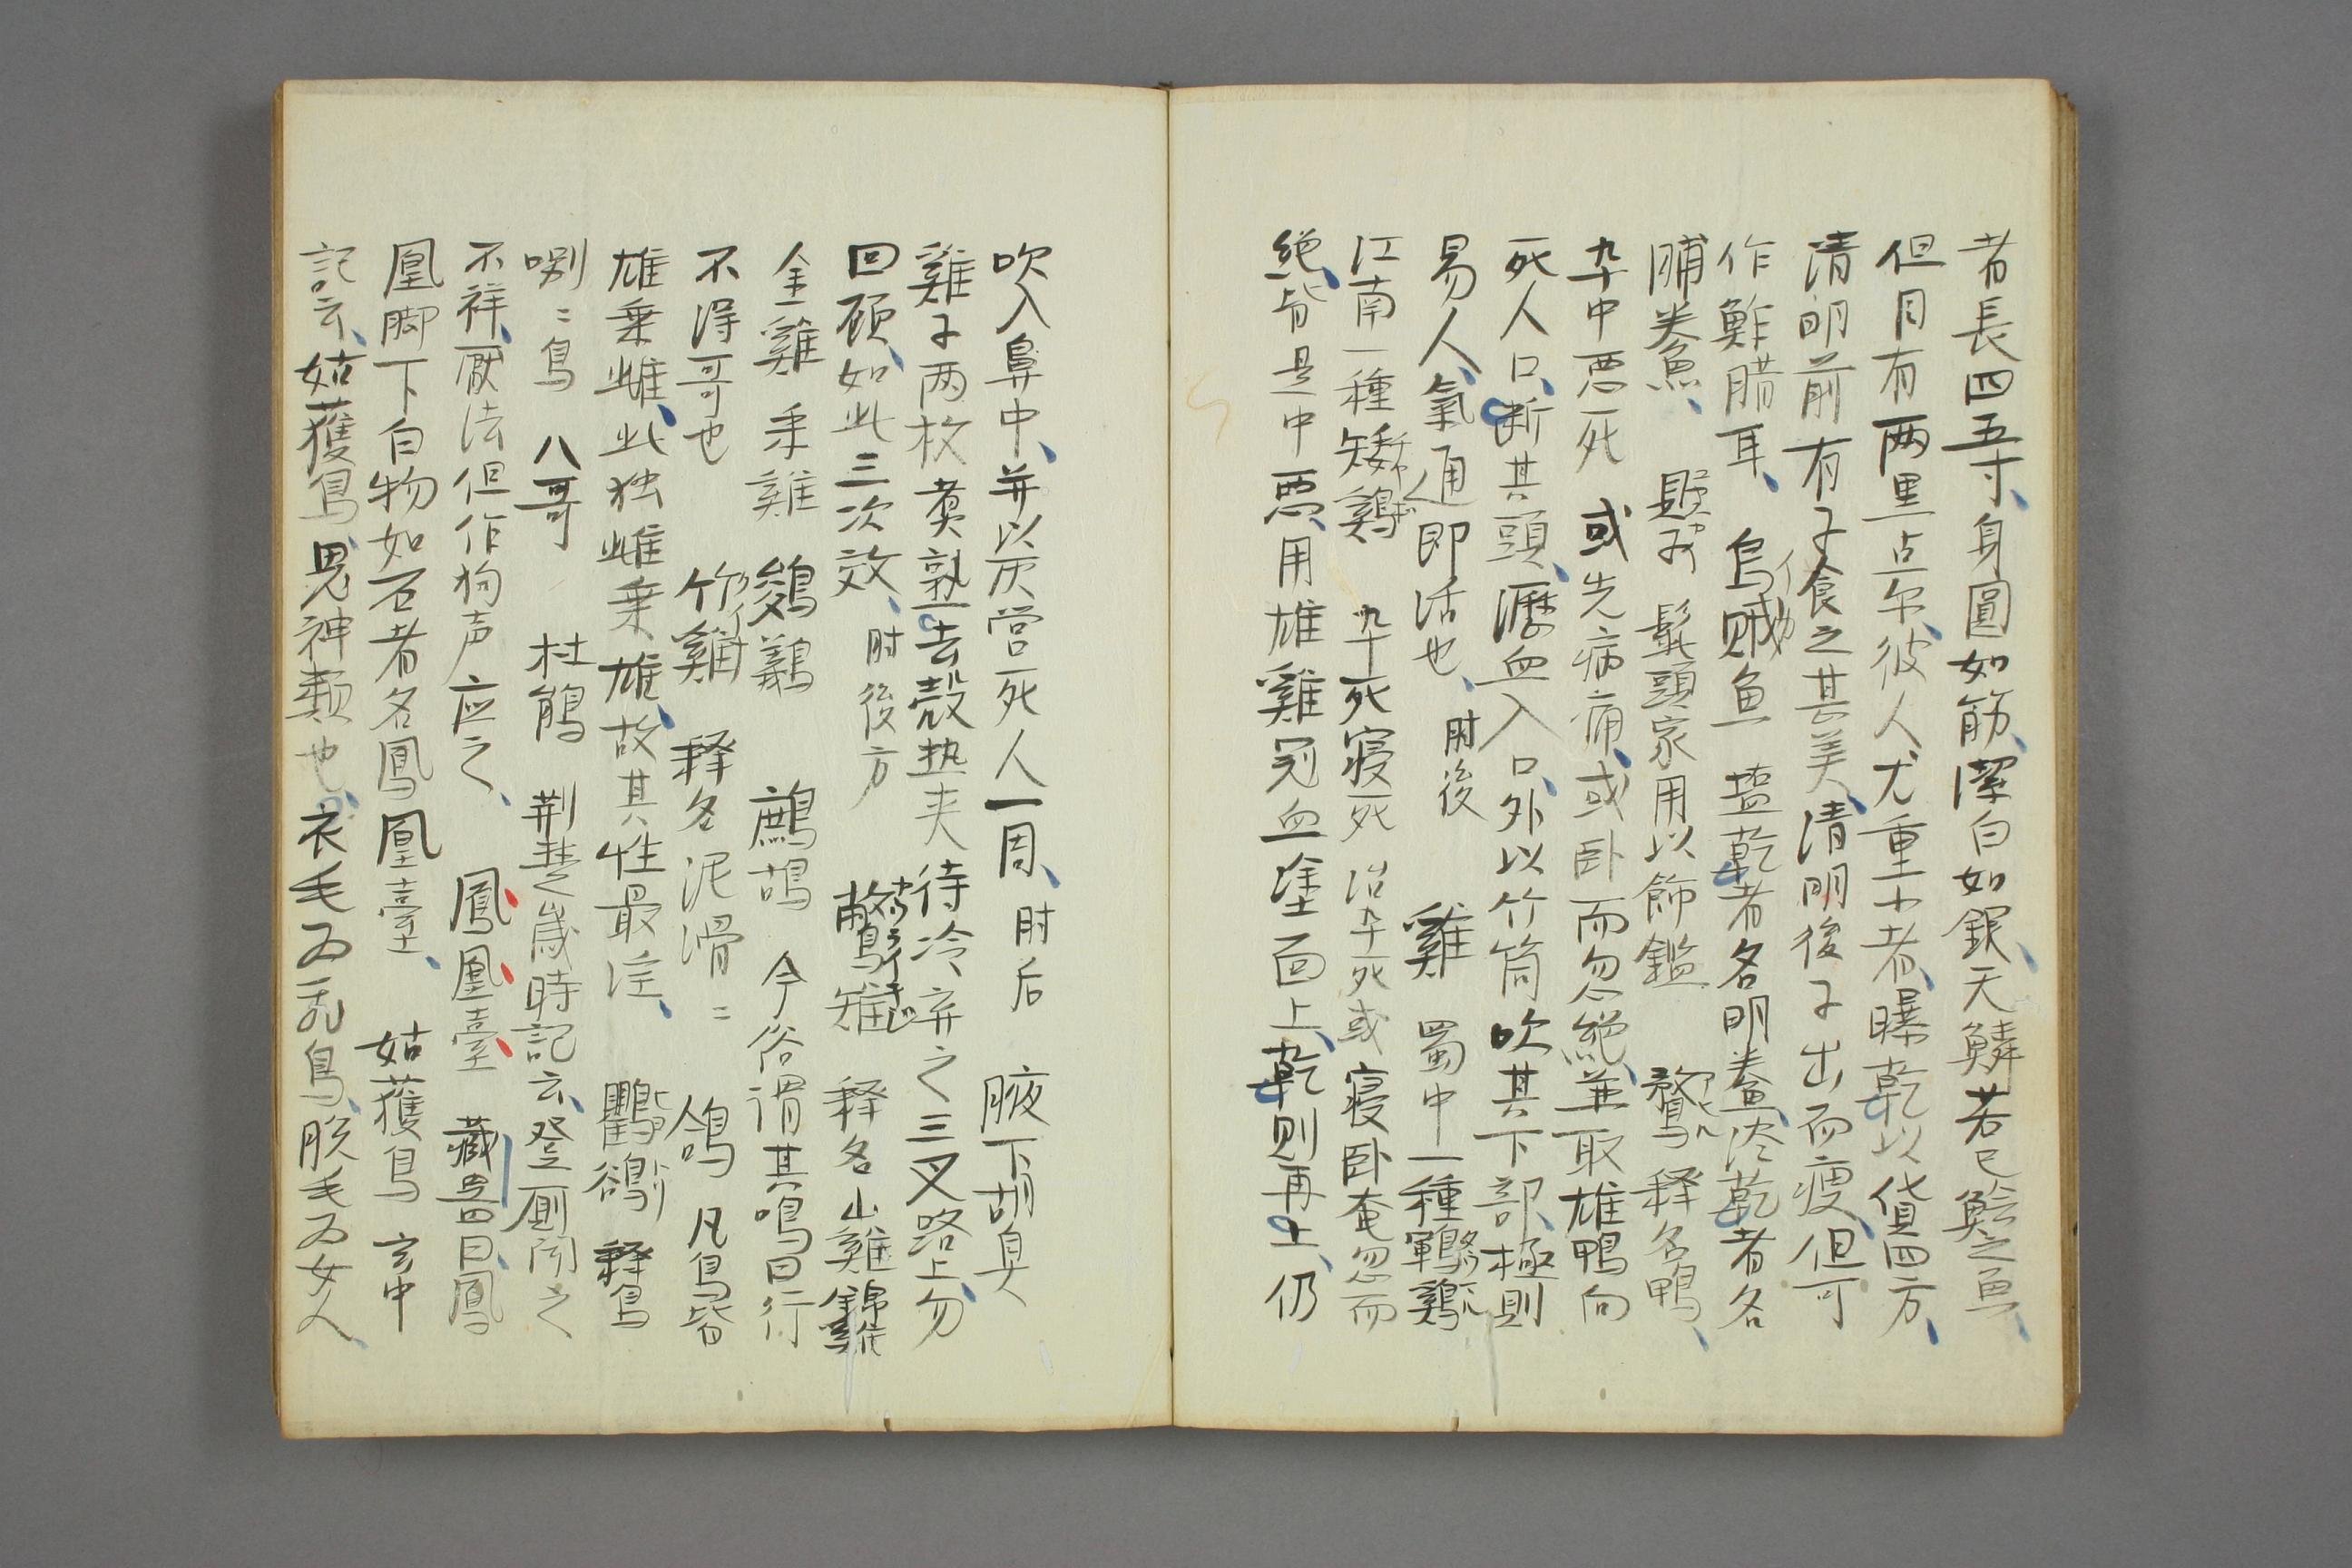 者長四五寸、身圓如筋、潔白如銀、无鱗若已鱠之魚、
但目有两黒点尓、彼人尤重小者、曝乾以貨四方、
清明前有子食之甚美、清明後子出而瘦、但可
作鮓腊耳、 烏賊魚 塩乾者名明鯗、淡乾者名
脯鯗魚、 鬏頭家用以飾鑑 鶩 释名鴨、
卒中悪死 或先病痛、或卧而忽絶、並取雄鴨向
死人口、断其頭、瀝血入口、外以竹筒吹其下部、極則
易人、氣通即活也、 肘後 雞 蜀中一種鶤鶏
江南一種矮鶏 卒死寝死 治卒死或寝卧奄忽而
絶、皆是中悪、用雄雞冠血塗面上、乾則再上、仍
吹入鼻中、并以灰営死人一周、 肘后 腋下胡臭
雞子两枚煑熟去殻热夹待冷弃之三叉路上、勿
回顧、如此三次效、 肘後方 鷩雉 释名山雞錦雞
金雞 采雞 鵔鸃 鷓鴣 今俗謂其鳴曰行
不得哥也 竹雞 释名泥滑〻 鴿 凡鳥皆
雄乗雌、此独雌乗雄、故其性最淫、 鸜鵒 释鳥
唎〻鳥 八哥 杜鵑 荆楚歳時記云、登厠聞之
不祥、厭法但作狗声应之、 鳳凰臺 藏噐曰、鳳
凰脚下白物如石者名鳳凰臺、 姑獲鳥 玄中
記云、姑獲鳥鬼神類也、衣毛为飛鳥、脱毛为女人、